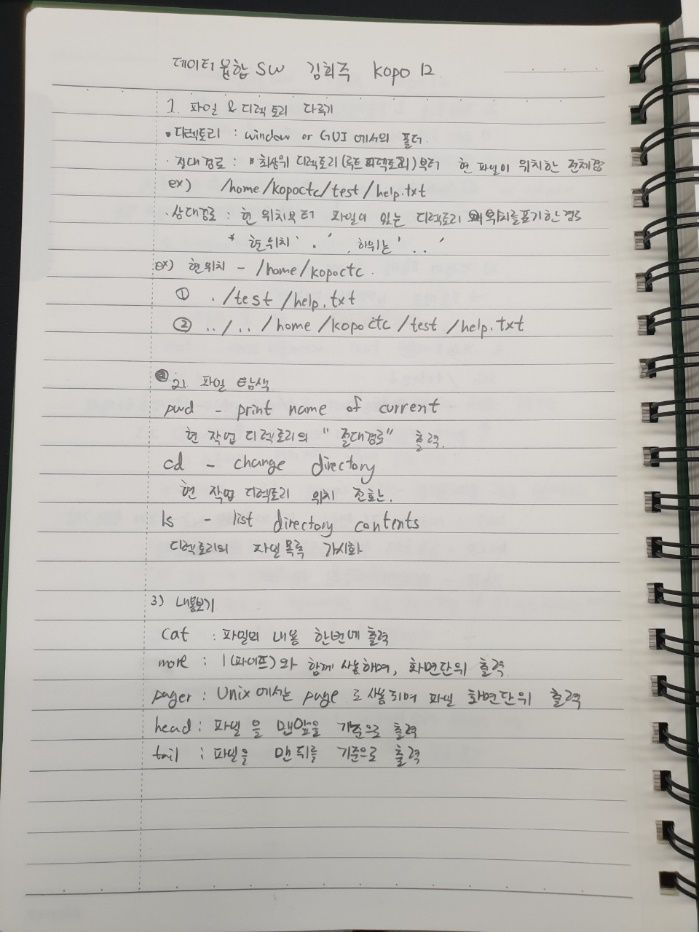 데이터융합 SW 김희주 kopo 12
1. 파일 & 디렉토리 다루기
• 디렉토리 : window or GUI 에서의 폴더
· 절대경로 : 최상위 디렉토리(루트 디렉토리)부터 현 파일이 위치한 전체
ex) /home/kopoctc/test/help.txt
· 상대경로 : 현 위치부터 파일이 있는 디렉토리 위치를 표기한 경로
* 현위치 ' . ' , 하위는 ' . . '
ex) 현위치 - /home/kopoctc.
① ./test/help.txt
② ../../home/kopoctc/test/help.txt
2) 파일 탐색
pwd - print name of current
현 작업 디렉토리의 "절대경로" 출력.
cd - change directory
현 작업 디렉토리 위치 전환.
ls - list directory contents
디렉토리의 파일 목록 가시화
3) 내용보기
cat : 파일의 내용 한번에 출력
more : |(파이프)와 함께 사용하며, 화면단위 출력
pager : Unix 에서는 page 로 사용되며 파일 화면단위 출력
head : 파일을 맨앞을 기준으로 출력
tail : 파일을 맨 뒤를 기준으로 출력